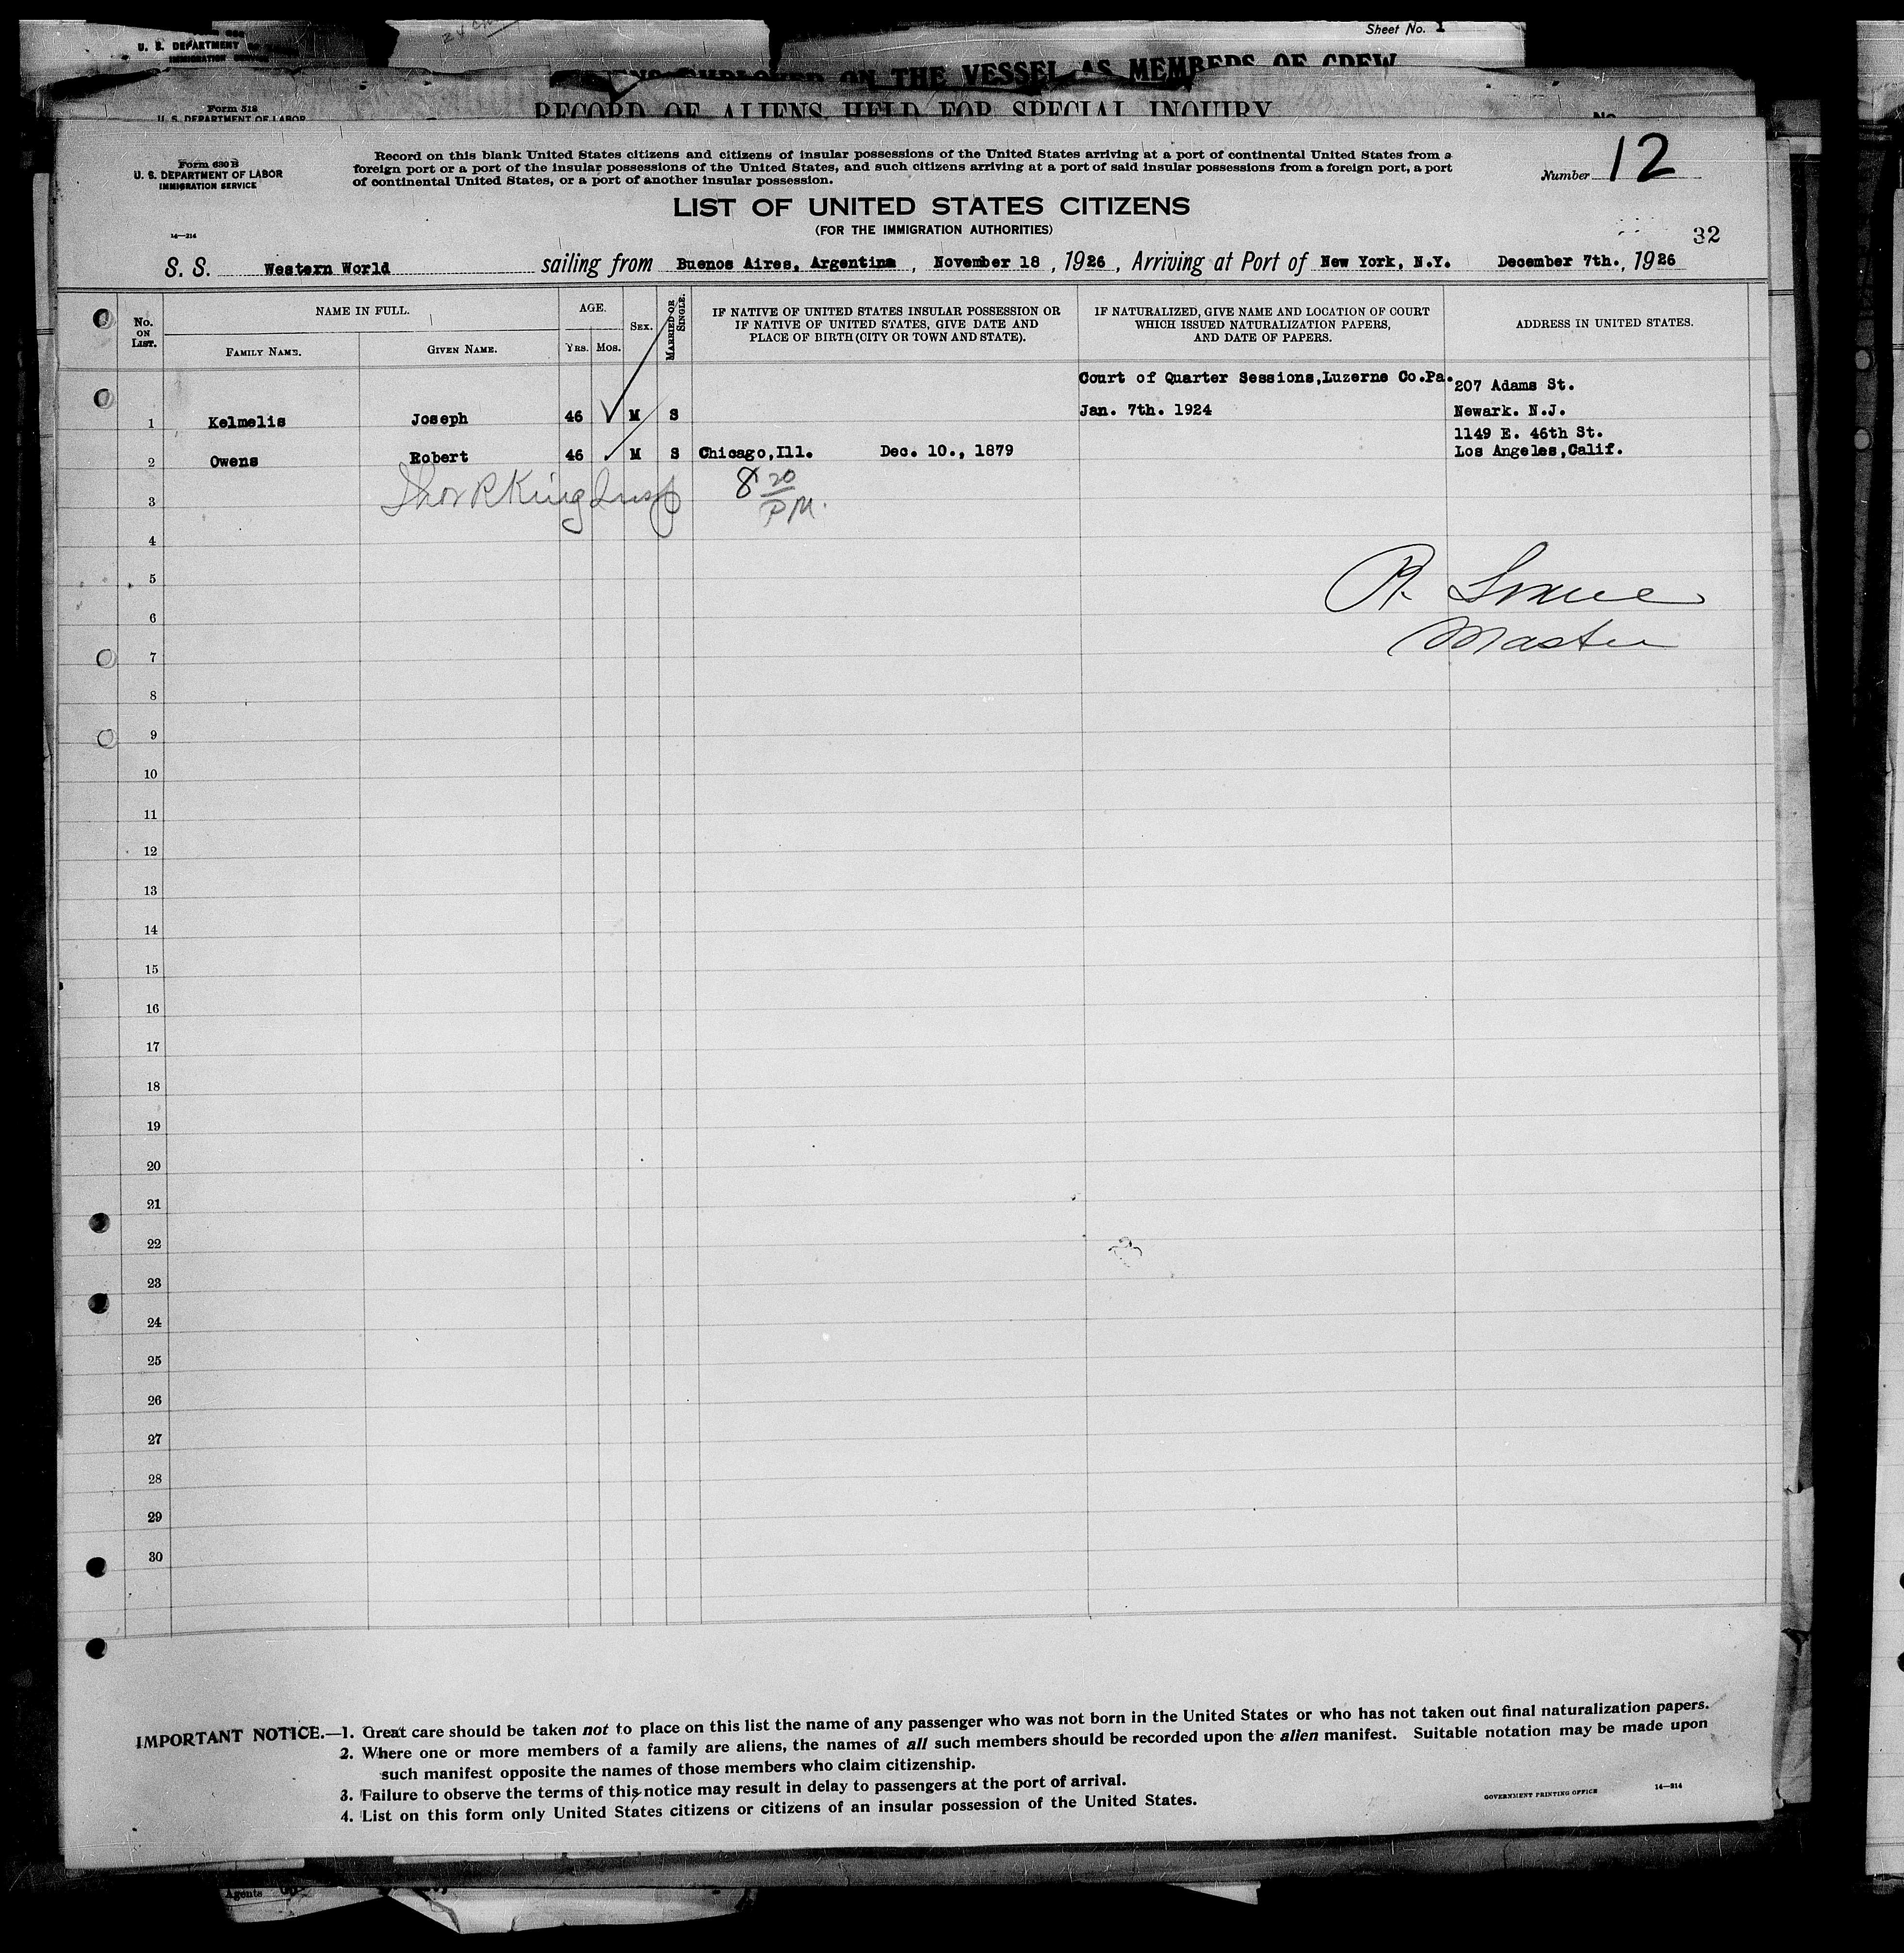 U. S. DEPARTMENT OF
IMMIGRATION SERVICE
Sheet No. 1
EMPLOYED ON THE VESSEL AS MEMBERS OF CREW
Form 518
U. S. DEPARTMENT OF LABOR
RECORD OF ALIENS HELD FOR SPECIAL INQUIRY
No.
Form 630 B
U. S. DEPARTMENT OF LABOR
IMMIGRATION SERVICE
Record on this blank United States citizens and citizens of insular possessions of the United States arriving at a port of continental United States from a
foreign port or a port of the insular possessions of the United States, and such citizens arriving at a port of said insular possessions from a foreign port, a port
of continental United States, or a port of another insular possession.
Number 12
LIST OF UNITED STATES CITIZENS
(FOR THE IMMIGRATION AUTHORITIES)
14—214
32
S. S. Western World sailing from Buenos Aires, Argentina, November 18, 1926, Arriving at Port of New York, N.Y. December 7th., 1926
No. ON LIST.
NAME IN FULL.
FAMILY NAME.
GIVEN NAME.
AGE.
YRS.
MOS.
SEX.
MARRIED OR SINGLE.
IF NATIVE OF UNITED STATES INSULAR POSSESSION OR
IF NATIVE OF UNITED STATES, GIVE DATE AND
PLACE OF BIRTH (CITY OR TOWN AND STATE).
IF NATURALIZED, GIVE NAME AND LOCATION OF COURT
WHICH ISSUED NATURALIZATION PAPERS,
AND DATE OF PAPERS.
ADDRESS IN UNITED STATES.
Court of Quarter Sessions,Luzerne Co.Pa. 207 Adams St.
1 Kelmelis Joseph 46 M S Jan. 7th. 1924 Newark. N.J.
1149 E. 46th St.
2 Owens Robert 46 M S Chicago,Ill. Dec. 10., 1879 Los Angeles,Calif.
3 King Insp 8 20 PM.
4
5
R.
6
Master
7
8
9
10
11
12
13
14
15
16
17
18
19
20
21
22
23
24
25
26
27
28
29
30
IMPORTANT NOTICE.—1. Great care should be taken not to place on this list the name of any passenger who was not born in the United States or who has not taken out final naturalization papers.
2. Where one or more members of a family are aliens, the names of all such members should be recorded upon the alien manifest. Suitable notation may be made upon
such manifest opposite the names of those members who claim citizenship.
3. Failure to observe the terms of this notice may result in delay to passengers at the port of arrival.
4. List on this form only United States citizens or citizens of an insular possession of the United States.
GOVERNMENT PRINTING OFFICE 14—214
Agents